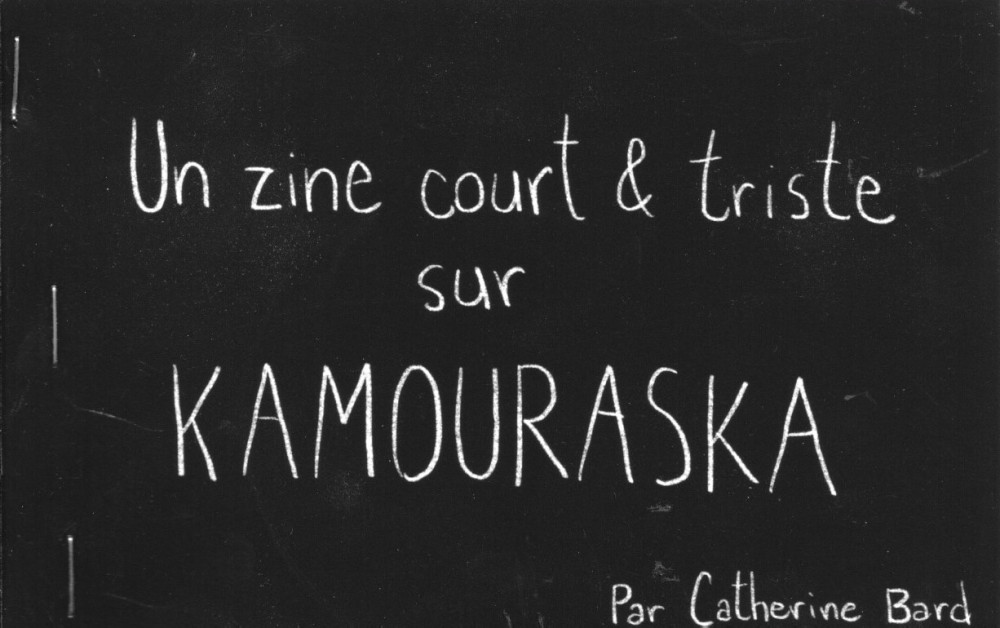 Un zine court & triste
sur
KAMOURASKA
Par Catherine Bard